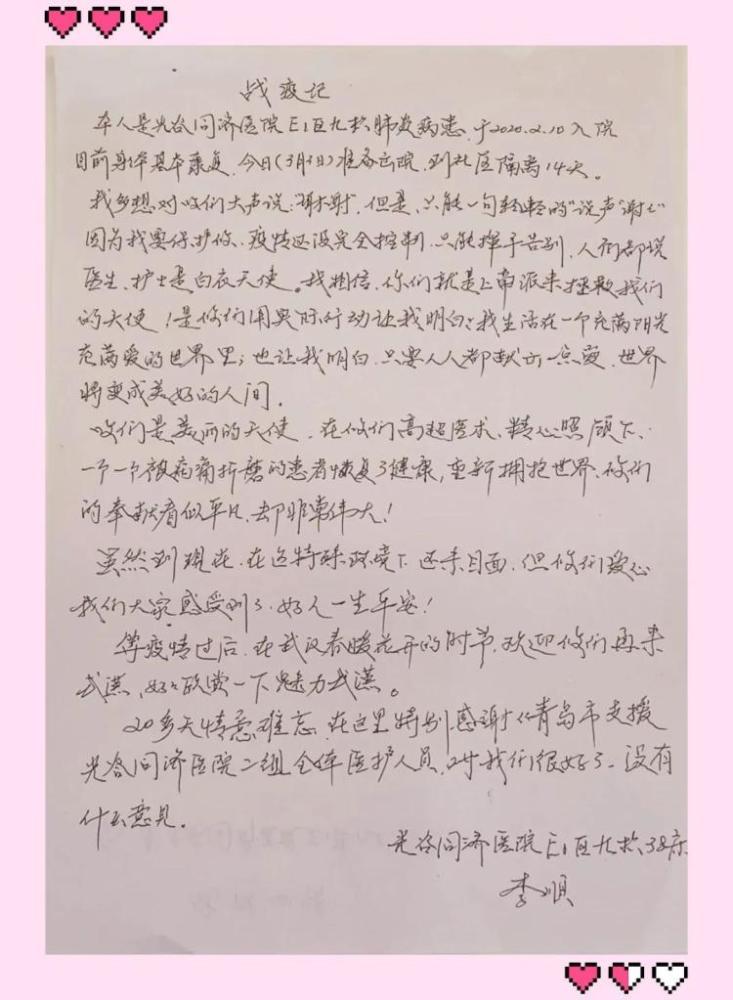 战疫记
本人是光谷同济医院E1区九楼肺炎病患,于2020.2.10入院
目前身体基本康复,今日(3月1日)准备出院,到社区隔离14天。
我多想对你们大声说:"谢谢",但是,只能一句轻轻的"说声"谢谢"
因为我要保护你,疫情还没完全控制,只能挥手告别,人们都说
医生、护士是白衣天使。我相信,你们就是上帝派来拯救我们
的天使!是你们用实际行动让我明白:我生活在一个充满阳光
充满爱的世界里;也让我明白,只要人人都献出一点爱,世界
将变成美好的人间.
你们是美丽的天使,在你们高超医术、精心照顾下、
一个一个被病痛折磨的患者恢复了健康,重新拥抱世界.你们
的奉献看似平凡,却非常伟大!
虽然到现在,在这特殊环境下,还未目面,但你们爱心
我们大家感受到了.好人一生平安!
等疫情过后,在武汉春暖花开的时节,欢迎你们再来
武汉,好好欣赏一下魅力武汉。
20多天情意难忘,在这里特别感谢青岛市支援
光谷同济医院二组全体医护人员,对我们很好了、没有
什么意见.
光谷同济医院E1区九楼38床
李顺